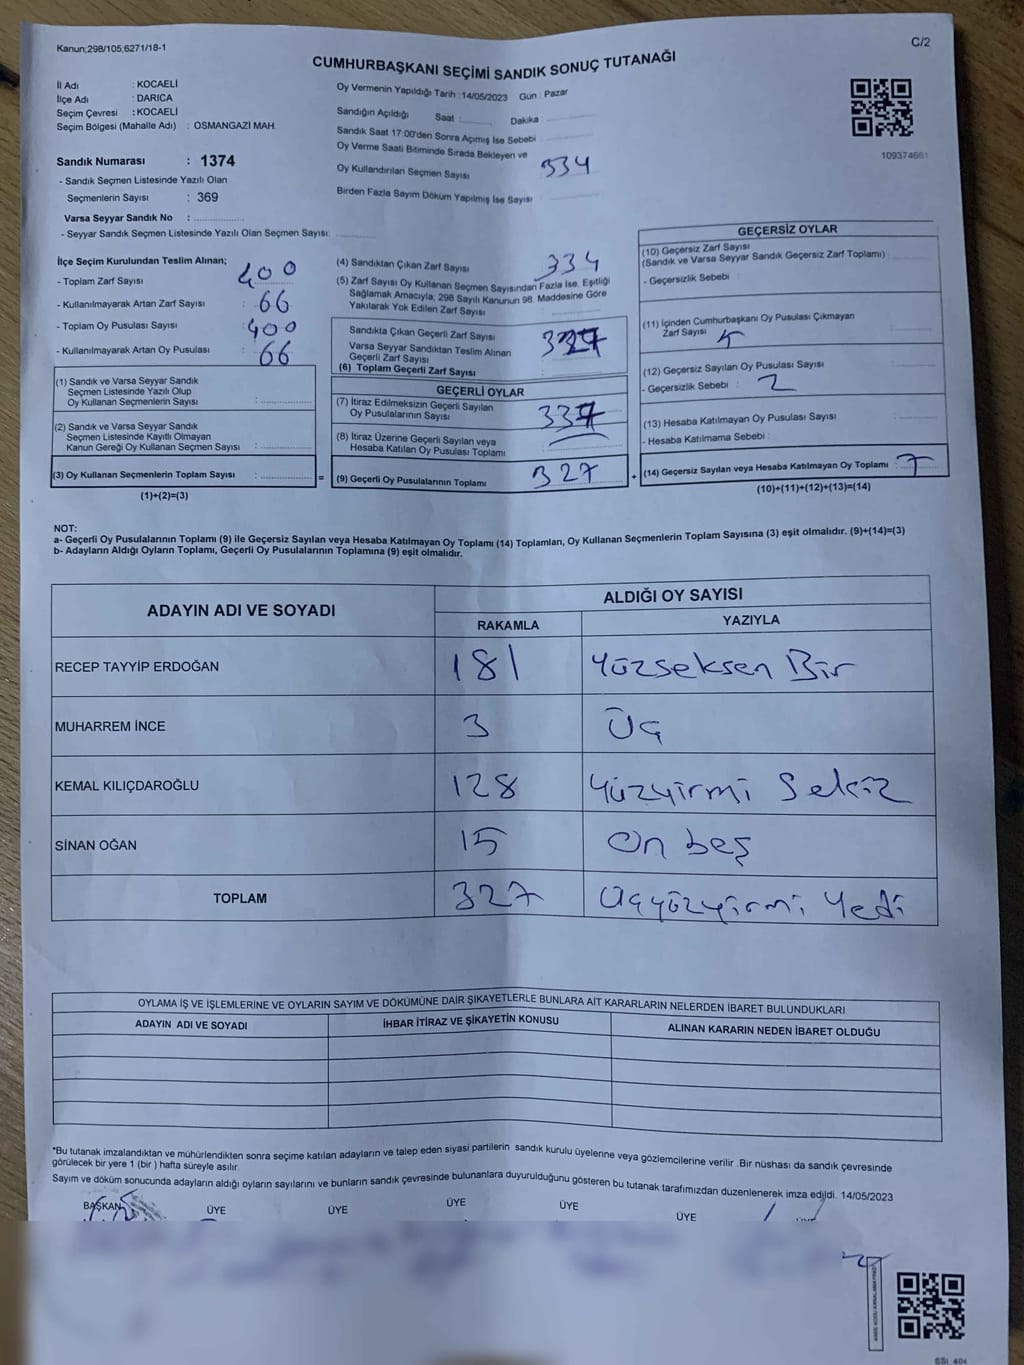 Kanun;298/105,6271/18-1
C/2
CUMHURBAŞKANI SEÇİMİ SANDIK SONUÇ TUTANAĞI
İl Adı : KOCAELİ
İlçe Adı : DARICA
Seçim Çevresi : KOCAELİ
Seçim Bölgesi (Mahalle Adı) : OSMANGAZİ MAH.
Sandık Numarası : 1374
- Sandık Seçmen Listesinde Yazılı Olan
Seçmenlerin Sayısı : 369
Varsa Seyyar Sandık No :
- Seyyar Sandık Seçmen Listesinde Yazılı Olan Seçmen Sayısı:
Oy Vermenin Yapıldığı Tarih : 14/05/2023 Gün : Pazar
Sandığın Açıldığı Saat : Dakika :
Sandık Saat 17:00'den Sonra Açımış İse Sebebi
Oy Verme Saati Bitiminde Sırada Bekleyen ve
Oy Kullandırılan Seçmen Sayısı 334
Birden Fazla Sayım Döküm Yapılmış İse Sayısı
109374661
İlçe Seçim Kurulundan Teslim Alınan;
- Toplam Zarf Sayısı 400
- Kullanılmayarak Artan Zarf Sayısı : 66
- Toplam Oy Pusulası Sayısı : 400
- Kullanılmayarak Artan Oy Pusulası : 66
(1) Sandık ve Varsa Seyyar Sandık
Seçmen Listesinde Yazılı Olup
Oy Kullanan Seçmenlerin Sayısı :
(2) Sandık ve Varsa Seyyar Sandık
Seçmen Listesinde Kayıtlı Olmayan
Kanun Gereği Oy Kullanan Seçmen Sayısı :
(3) Oy Kullanan Seçmenlerin Toplam Sayısı :
(1)+(2)=(3)
(4) Sandıktan Çıkan Zarf Sayısı 334
(5) Zarf Sayısı Oy Kullanan Seçmen Sayısından Fazla İse, Eşitliği
Sağlamak Amacıyla; 298 Sayılı Kanunun 98. Maddesine Göre
Yakılarak Yok Edilen Zarf Sayısı
Sandıkta Çıkan Geçerli Zarf Sayısı
Varsa Seyyar Sandıktan Teslim Alınan
Geçerli Zarf Sayısı
(6) Toplam Geçerli Zarf Sayısı
GEÇERLİ OYLAR
(7) İtiraz Edilmeksizin Geçerli Sayılan
Oy Pusulalarının Sayısı
(8) İtiraz Üzerine Geçerli Sayılan veya
Hesaba Katılan Oy Pusulası Toplamı
= (9) Geçerli Oy Pusulalarının Toplamı 327
GEÇERSİZ OYLAR
(10) Geçersiz Zarf Sayısı
(Sandık ve Varsa Seyyar Sandık Geçersiz Zarf Toplamı) :
- Geçersizlik Sebebi :
(11) İçinden Cumhurbaşkanı Oy Pusulası Çıkmayan
Zarf Sayısı 5
(12) Geçersiz Sayılan Oy Pusulası Sayısı
- Geçersizlik Sebebi : 2
(13) Hesaba Katılmayan Oy Pusulası Sayısı
- Hesaba Katılmama Sebebi :
+ (14) Geçersiz Sayılan veya Hesaba Katılmayan Oy Toplamı : 7
(10)+(11)+(12)+(13)=(14)
NOT:
a- Geçerli Oy Pusulalarının Toplamı (9) ile Geçersiz Sayılan veya Hesaba Katılmayan Oy Toplamı (14) Toplamları, Oy Kullanan Seçmenlerin Toplam Sayısına (3) eşit olmalıdır. (9)+(14)=(3)
b- Adayların Aldığı Oyların Toplamı, Geçerli Oy Pusulalarının Toplamına (9) eşit olmalıdır.
ADAYIN ADI VE SOYADI
ALDIĞI OY SAYISI
RAKAMLA YAZIYLA
RECEP TAYYİP ERDOĞAN 181 Yüzseksen Bir
MUHARREM İNCE 3 Üç
KEMAL KILIÇDAROĞLU 128 Yüzyirmi Sekiz
SİNAN OĞAN 15 On beş
TOPLAM 327 Üçyüzyirmi Yedi
OYLAMA İŞ VE İŞLEMLERİNE VE OYLARIN SAYIM VE DÖKÜMÜNE DAİR ŞİKAYETLERLE BUNLARA AİT KARARLARIN NELERDEN İBARET BULUNDUKLARI
ADAYIN ADI VE SOYADI İHBAR İTİRAZ VE ŞİKAYETİN KONUSU ALINAN KARARIN NEDEN İBARET OLDUĞU
*Bu tutanak imzalandıktan ve mühürlendikten sonra seçime katılan adayların ve talep eden siyasi partilerin sandık kurulu üyelerine veya gözlemcilerine verilir .Bir nüshası da sandık çevresinde
görülecek bir yere 1 (bir ) hafta süreyle asılır.
Sayım ve döküm sonucunda adayların aldığı oyların sayılarını ve bunların sandık çevresinde bulunanlara duyurulduğunu gösteren bu tutanak tarafımızdan düzenlenerek imza edildi. 14/05/2023
BAŞKAN ÜYE ÜYE ÜYE ÜYE ÜYE